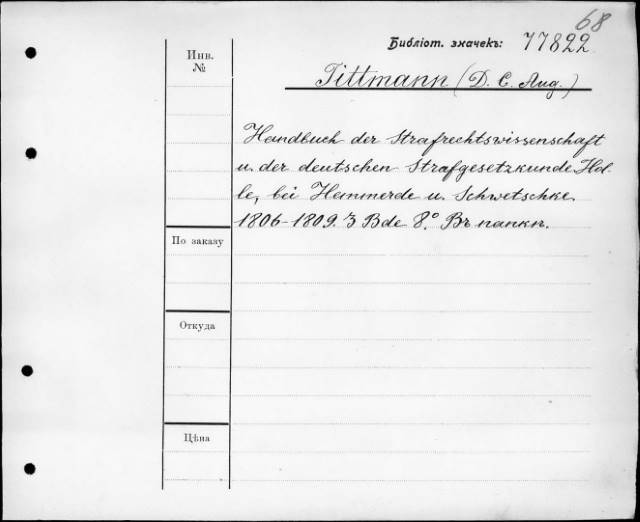 68
Библіот. значекъ: 77822
Инв.
№
Tittmann (D. C. Aug.)
Handbuch der Strafrechtswissenschaft
u. der deutschen Strafgesetzkunde. Hal-
le, bei Hemmerde u. Schwetschke.
1806-1809. 3 Bde 8.º Въ папкѣ.
По заказу
Откуда
Цѣна